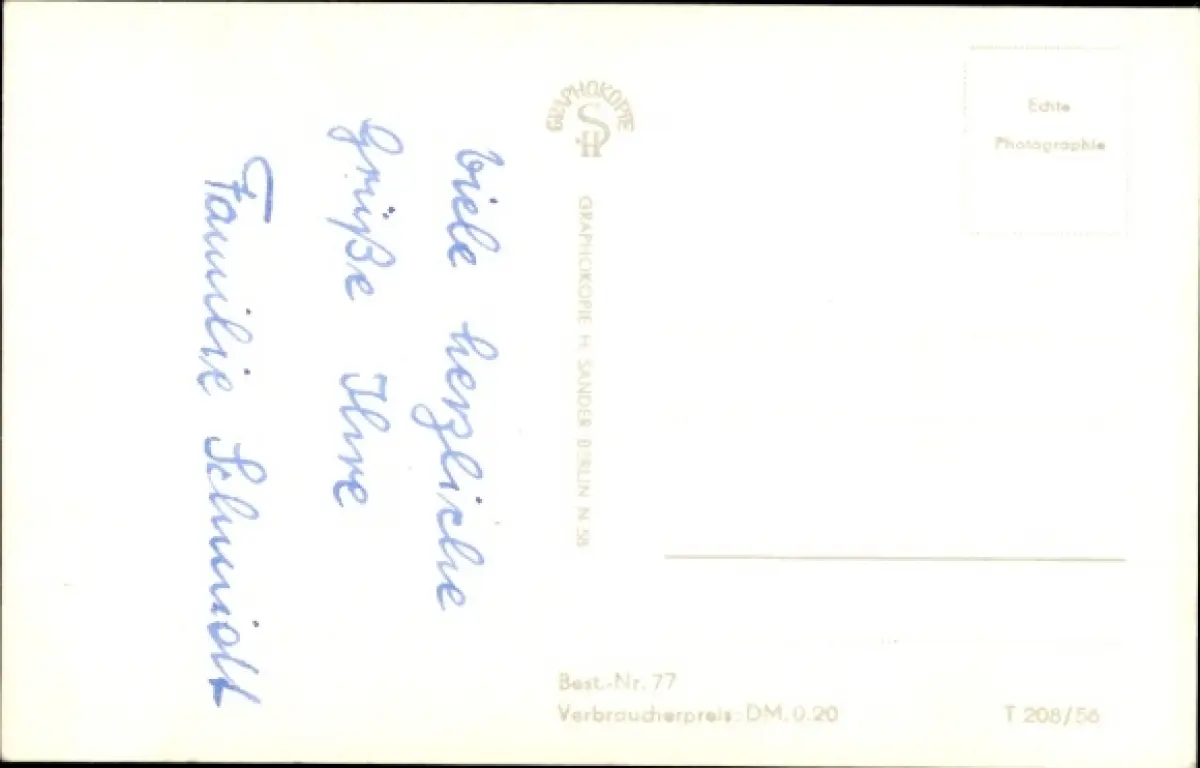 Viele herzliche
Grüße Ihre
Familie Schmidt
GRAPHOKOPIE
SH
GRAPHOKOPIE H. SANDER BERLIN N 58
Echte
Photographie
Best.-Nr. 77
Verbraucherpreis: DM. 0.20
T 208/56